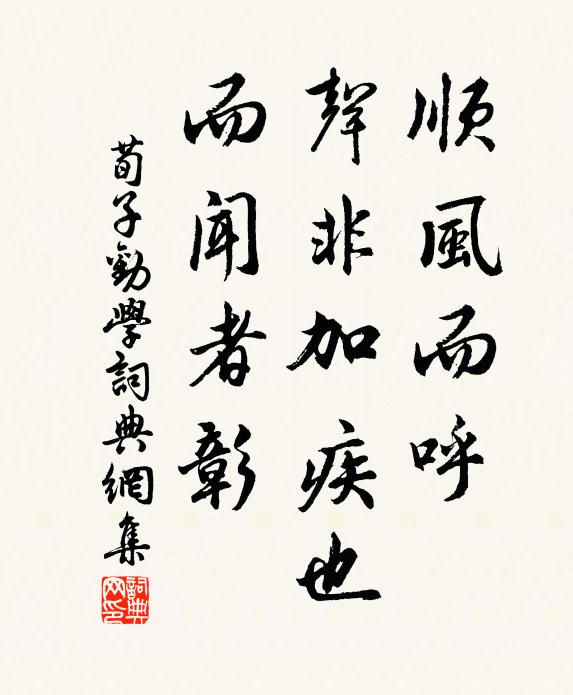 順風而呼
聲非加疾也
而聞者彰
荀子勸學詞典網集
詞典网印